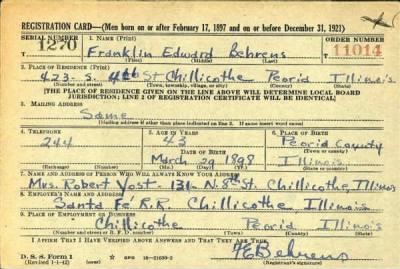 REGISTRATION CARD—(Men born on or after February 17, 1897 and on or before December 31, 1921)
SERIAL NUMBER 1. NAME (Print) ORDER NUMBER
1270 Franklin Edward Behrens 11014
(First) (Middle) (Last)
2. PLACE OF RESIDENCE (Print)
423 - S. 4th St Chillicothe Peoria Illinois
(Number and street) (Town, township, village, or city) (County) (State)
[THE PLACE OF RESIDENCE GIVEN ON THE LINE ABOVE WILL DETERMINE LOCAL BOARD
JURISDICTION; LINE 2 OF REGISTRATION CERTIFICATE WILL BE IDENTICAL]
3. MAILING ADDRESS
Same
[Mailing address if other than place indicated on line 2. If same insert word same]
4. TELEPHONE 5. AGE IN YEARS 6. PLACE OF BIRTH
244 43 Peoria County
DATE OF BIRTH (Town or county)
March 29 1898 Illinois
(Mo.) (Day) (Yr.) (State or country)
7. NAME AND ADDRESS OF PERSON WHO WILL ALWAYS KNOW YOUR ADDRESS
Mrs. Robert Yost - 131 - N. 8th St. Chillicothe, Illinois
8. EMPLOYER'S NAME AND ADDRESS
Santa Fe R.R. Chillicothe Illinois
9. PLACE OF EMPLOYMENT OR BUSINESS
Chillicothe Peoria Illinois
(Number and street or R. F. D. number) (Town) (County) (State)
I AFFIRM THAT I HAVE VERIFIED ABOVE ANSWERS AND THAT THEY ARE TRUE.
D. S. S. Form 1
(Revised 1-1-42) (over)
FE Behrens